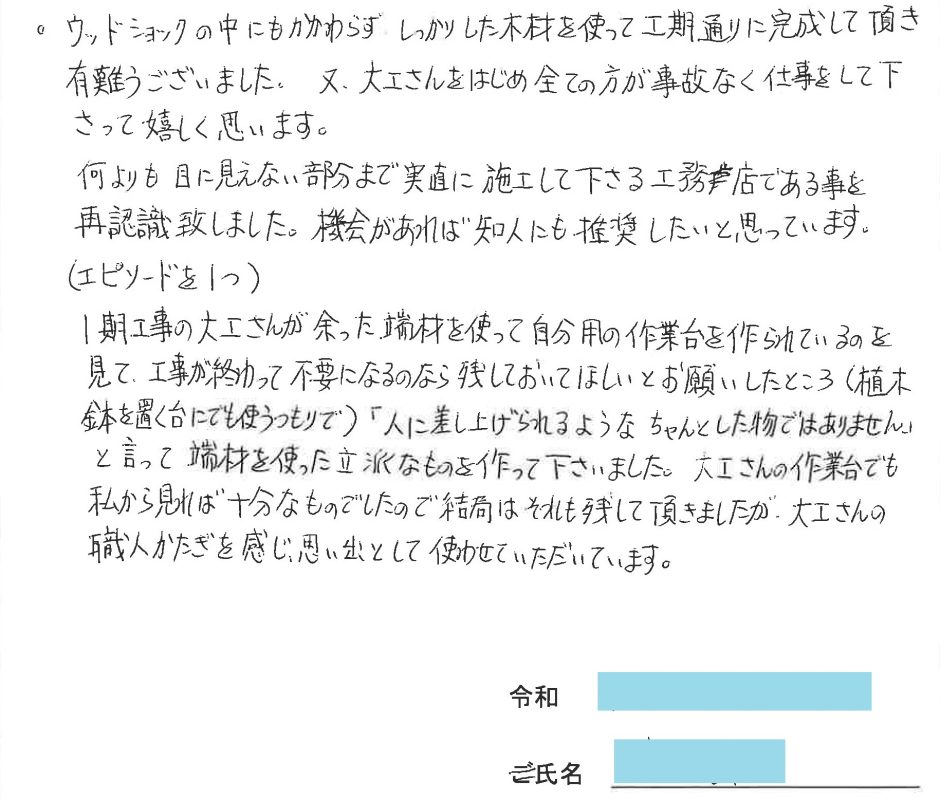 。ウッドショックの中にもかかわらず しっかりした木材を使って工期通りに完成して頂き
有難うございました。 又、大工さんをはじめ全ての方が事故なく仕事をして下
さって嬉しく思います。
何よりも目に見えない部分まで実直に施工して下さる工務店である事を
再認識致しました。機会があれば知人にも推奨したいと思っています。
(エピソードを1つ)
1期工事の大工さんが余った端材を使って自分用の作業台を作られているのを
見て、工事が終わって不要になるのなら残しておいてほしいとお願いしたところ(植木
鉢を置く台にでも使うつもりで)「人に差し上げられるような ちゃんとした物ではありません」
と言って 端材を使った立派なものを作って下さいました。 大工さんの作業台でも
私から見れば十分なものでしたので結局はそれも残して頂きましたが、大工さんの
職人かたぎを感じ、思い出として使わせていただいています。
令和
ご氏名